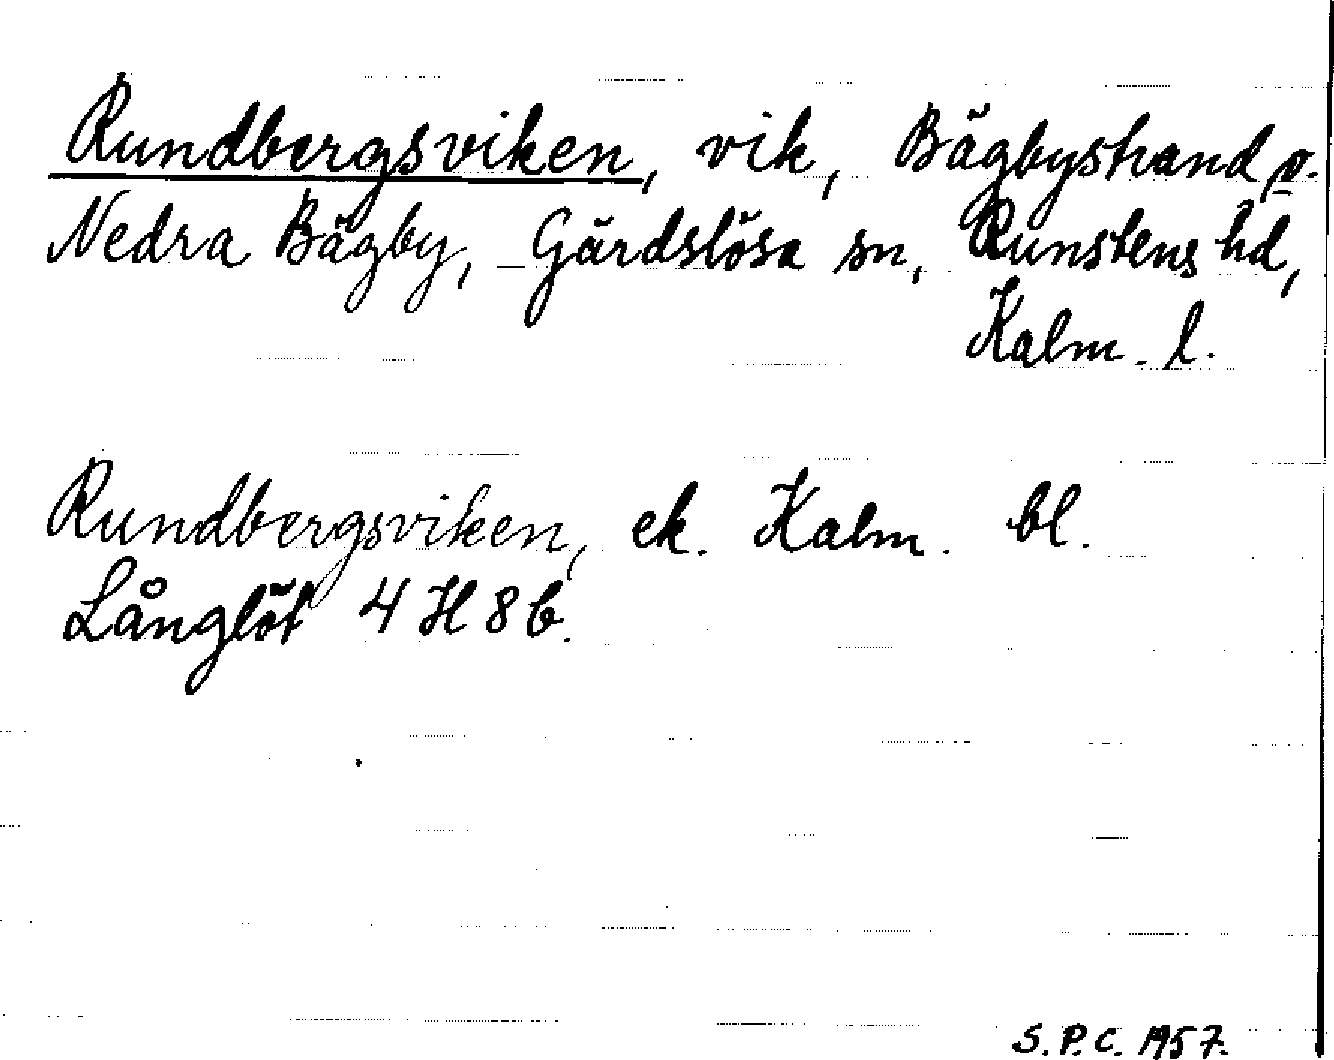 Rundbergsviken, vik, Bägbystrand o.
Nedra Bägby, Gärdslösa sn, Runstens hd,
Kalm. l.
Rundbergsviken, ek. Kalm. bl.
Långlöt 4 H 8 b.
S.P.C. 1957.